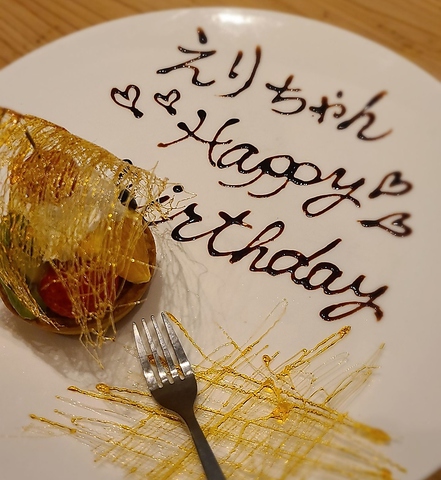 えりちゃん
Happy
Birthday